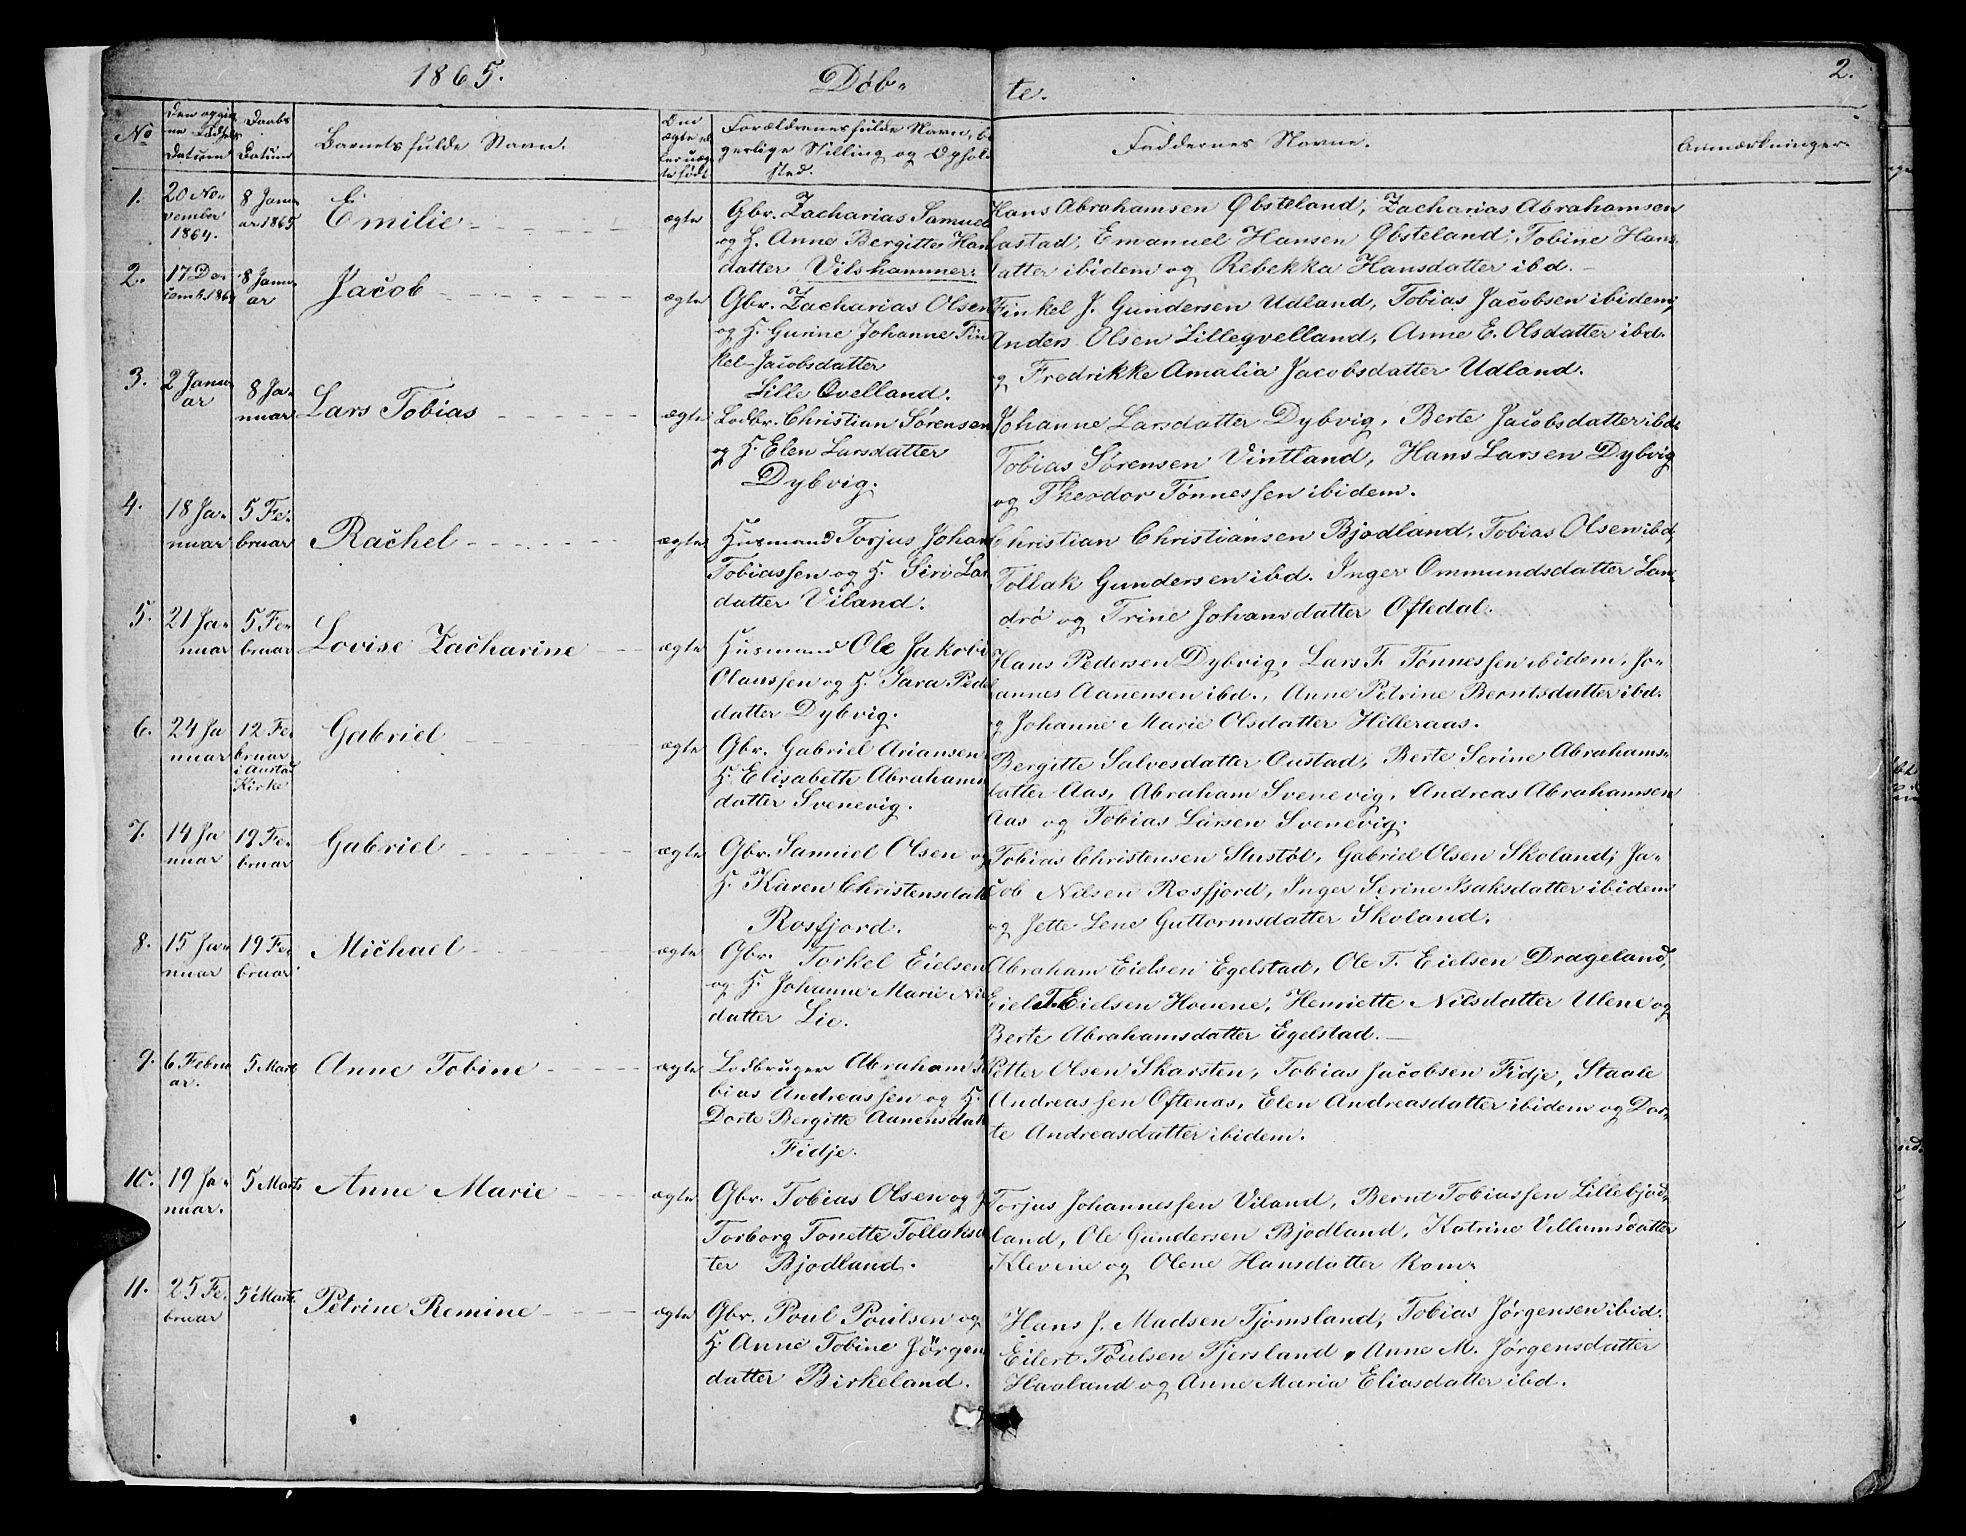 1865. Döb- te. 2.
No
Den opgiv-
ne Födsels
Datum
Daabs
Datum
Barnets fulde Navn.
Den
ægte el-
ler uæg-
te födt
Forældrenes fulde Navn, b
gerlige Stilling og Ophol
sted.
Faddernes Navne.
Anmærkninger.
1.
20 No-
vember
1864.
8 Janu-
ar 1865
Emilie
ægte
Gbr. Zacharias Samuel
og H. Anne Bergitte Han
datter Vilshammer.
Hans Abrahamsen Öbsteland, Zacharias Abrahamsen
Emanuel Hansen Öbsteland, Tobine Hans-
datter ibidem og Rebekka Hansdatter ibd.
2.
17 De-
cemb. 1864
8 Janu-
ar
Jacob
ægte
Gbr. Zacharias Olsen
og H. Gurine Johanne Fin
kel-Jacobsdatter
Lille Qvelland.
Finkel J. Gundersen Udland, Tobias Jacobsen ibidem,
Anders Olsen Lilleqvelland, Anne E. Olsdatter ibd.
og Fredrikke Amalia Jacobsdatter Udland.
3.
2 Janu-
ar
8 Ja-
nuar
Lars Tobias
ægte
Lodbr. Christian Sörensen
og H. Elen Larsdatter
Dybvig.
Johanne Larsdatter Dybvig, Berte Jacobsdatter ibd.
Tobias Sörensen Vintland, Hans Larsen Dybvig
og Theodor Tönnessen ibidem.
4.
18 Ja-
nuar
5 Fe-
bruar
Rachel
ægte
Husmand Torjus Johan
Tobiassen og H. Siri La
datter Viland.
Christian Christiansen Bjodland, Tobias Olsen ibd,
Tollak Gundersen ibd. Inger Ommundsdatter Lan-
drö og Trine Johansdatter Oftedal.
5.
21 Ja-
nuar
5 Fe-
bruar
Lovise Zacharine
ægte
Husmand Ole Jakobi
Olaussen og H. Sara Peder
datter Dybvig.
Hans Pedersen Dybvig, Lars T. Tönnessen ibidem, Jo-
hannes Aanensen ibd., Anne Petrine Berntsdatter ibd.
og Johanne Marie Olsdatter Hilleraas.
6.
24 Ja
nuar
12 Fe-
bruar
i Austad
Kirke
Gabriel
ægte
Gbr. Gabriel Ariansen
H. Elisabeth Abrahams
datter Svenevig.
Bergitte Salvesdatter Oustad, Berte Serine Abrahams-
datter Aas, Abraham Svenevig, Andreas Abrahamsen
Aas og Tobias Larsen Svenevig.
7.
14 Ja
nuar
19 Fe-
bruar
Gabriel
ægte
Gbr. Samuel Olsen og
H. Karen Christensdatt
Rosfjord.
Tobias Christensen Stustöl, Gabriel Olsen Skoland, Ja-
cob Nilsen Rosfjord, Inger Serine Isaksdatter ibidem
og Jette Lene Guttormsdatter Skoland.
8.
15 Ja-
nuar
19 Fe-
bruar
Michael
ægte
Gbr. Torkel Eielsen
og H. Johanne Marie Nil
datter Lie.
Abraham Eielsen Egelstad, Ole T. Eielsen Drageland,
Eiel T. Eielsen Houene, Henriette Nilsdatter Ulene og
Berte Abrahamsdatter Egelstad.
9.
6 Febru
ar.
5 Marts
Anne Tobine
ægte
Lodbruger Abraham To
bias Andreassen og H.
Dorte Bergitte Aanensdatt
Fidje.
Petter Olsen Skarsten, Tobias Jacobsen Fidje, Staale
Andreassen Oftenæs, Elen Andreasdatter ibidem og Dor-
te Andreasdatter ibidem.
10.
19 Ja-
nuar.
5 Marts
Anne Marie
ægte
Gbr. Tobias Olsen og H
Torborg Tonette Tollaksd
ter Bjodland.
Torjus Johannessen Viland, Bernt Tobiassen Lillebjod-
land, Ole Gundersen Bjodland, Katrine Villumsdatter
Klevene og Olene Hansdatter Rom.
11.
25 Fe-
bruar
5 Marts.
Petrine Remine
ægte
Gbr. Poul Poulsen og
H. Anne Tobine Jörgen
datter Birkeland.
Hans J. Madsen Tjomsland, Tobias Jörgensen ibid.
Eilert Poulsen Tjersland, Anne M. Jörgensdatter
Haaland og Anne Maria Eliasdatter ibd.